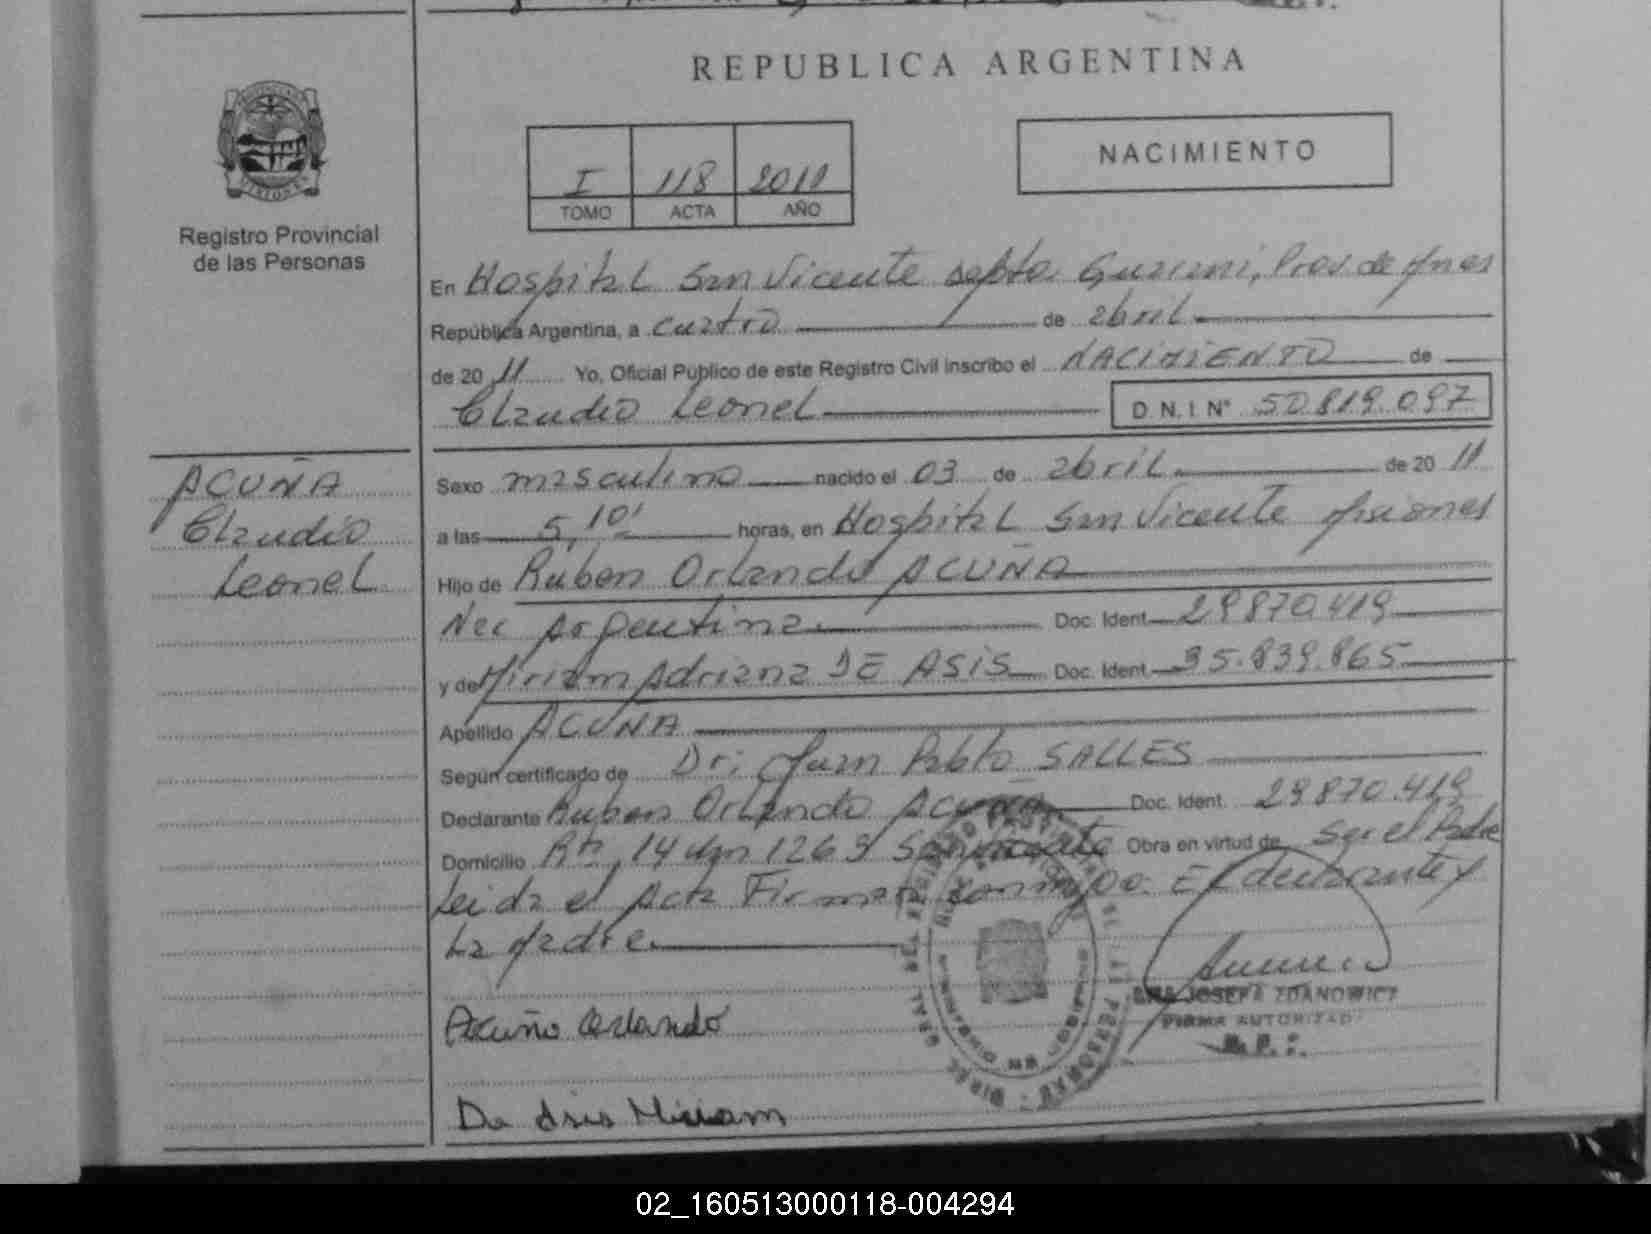 REPUBLICA ARGENTINA
Registro Provincial
de las Personas
I 118 2011
TOMO ACTA AÑO
NACIMIENTO
En Hospital San Vicente Depto. Guarani, Prov. de Mnes
República Argentina, a cuatro de abril
de 20 11 Yo, Oficial Público de este Registro Civil inscribo el NACIMIENTO de
Claudio Leonel D.N.I Nº 50.819.097
ACUÑA
Claudio
Leonel
Sexo masculino nacido el 03 de abril de 20 11
a las 5,10' horas, en Hospital San Vicente Misiones
Hijo de Ruben Orlando ACUÑA
Nac Argentina Doc. Ident. 29870.419
y de Miriam Adriana DE ASIS Doc. Ident. 35.839.865
Apellido ACUÑA
Según certificado de Dr; Juan Pablo SALLES
Declarante Ruben Orlando ACUÑA Doc. Ident. 29870.419
Domicilio Rta, 14 Km 1263 San Vicente Obra en virtud de Ser el Padre
Leida el Acta Firman conmigo El declarante y
La Madre
Acuño Orlando
De Asis Miriam
JOSEFA ZDANOWICZ
FIRMA AUTORIZAD
02_160513000118-004294